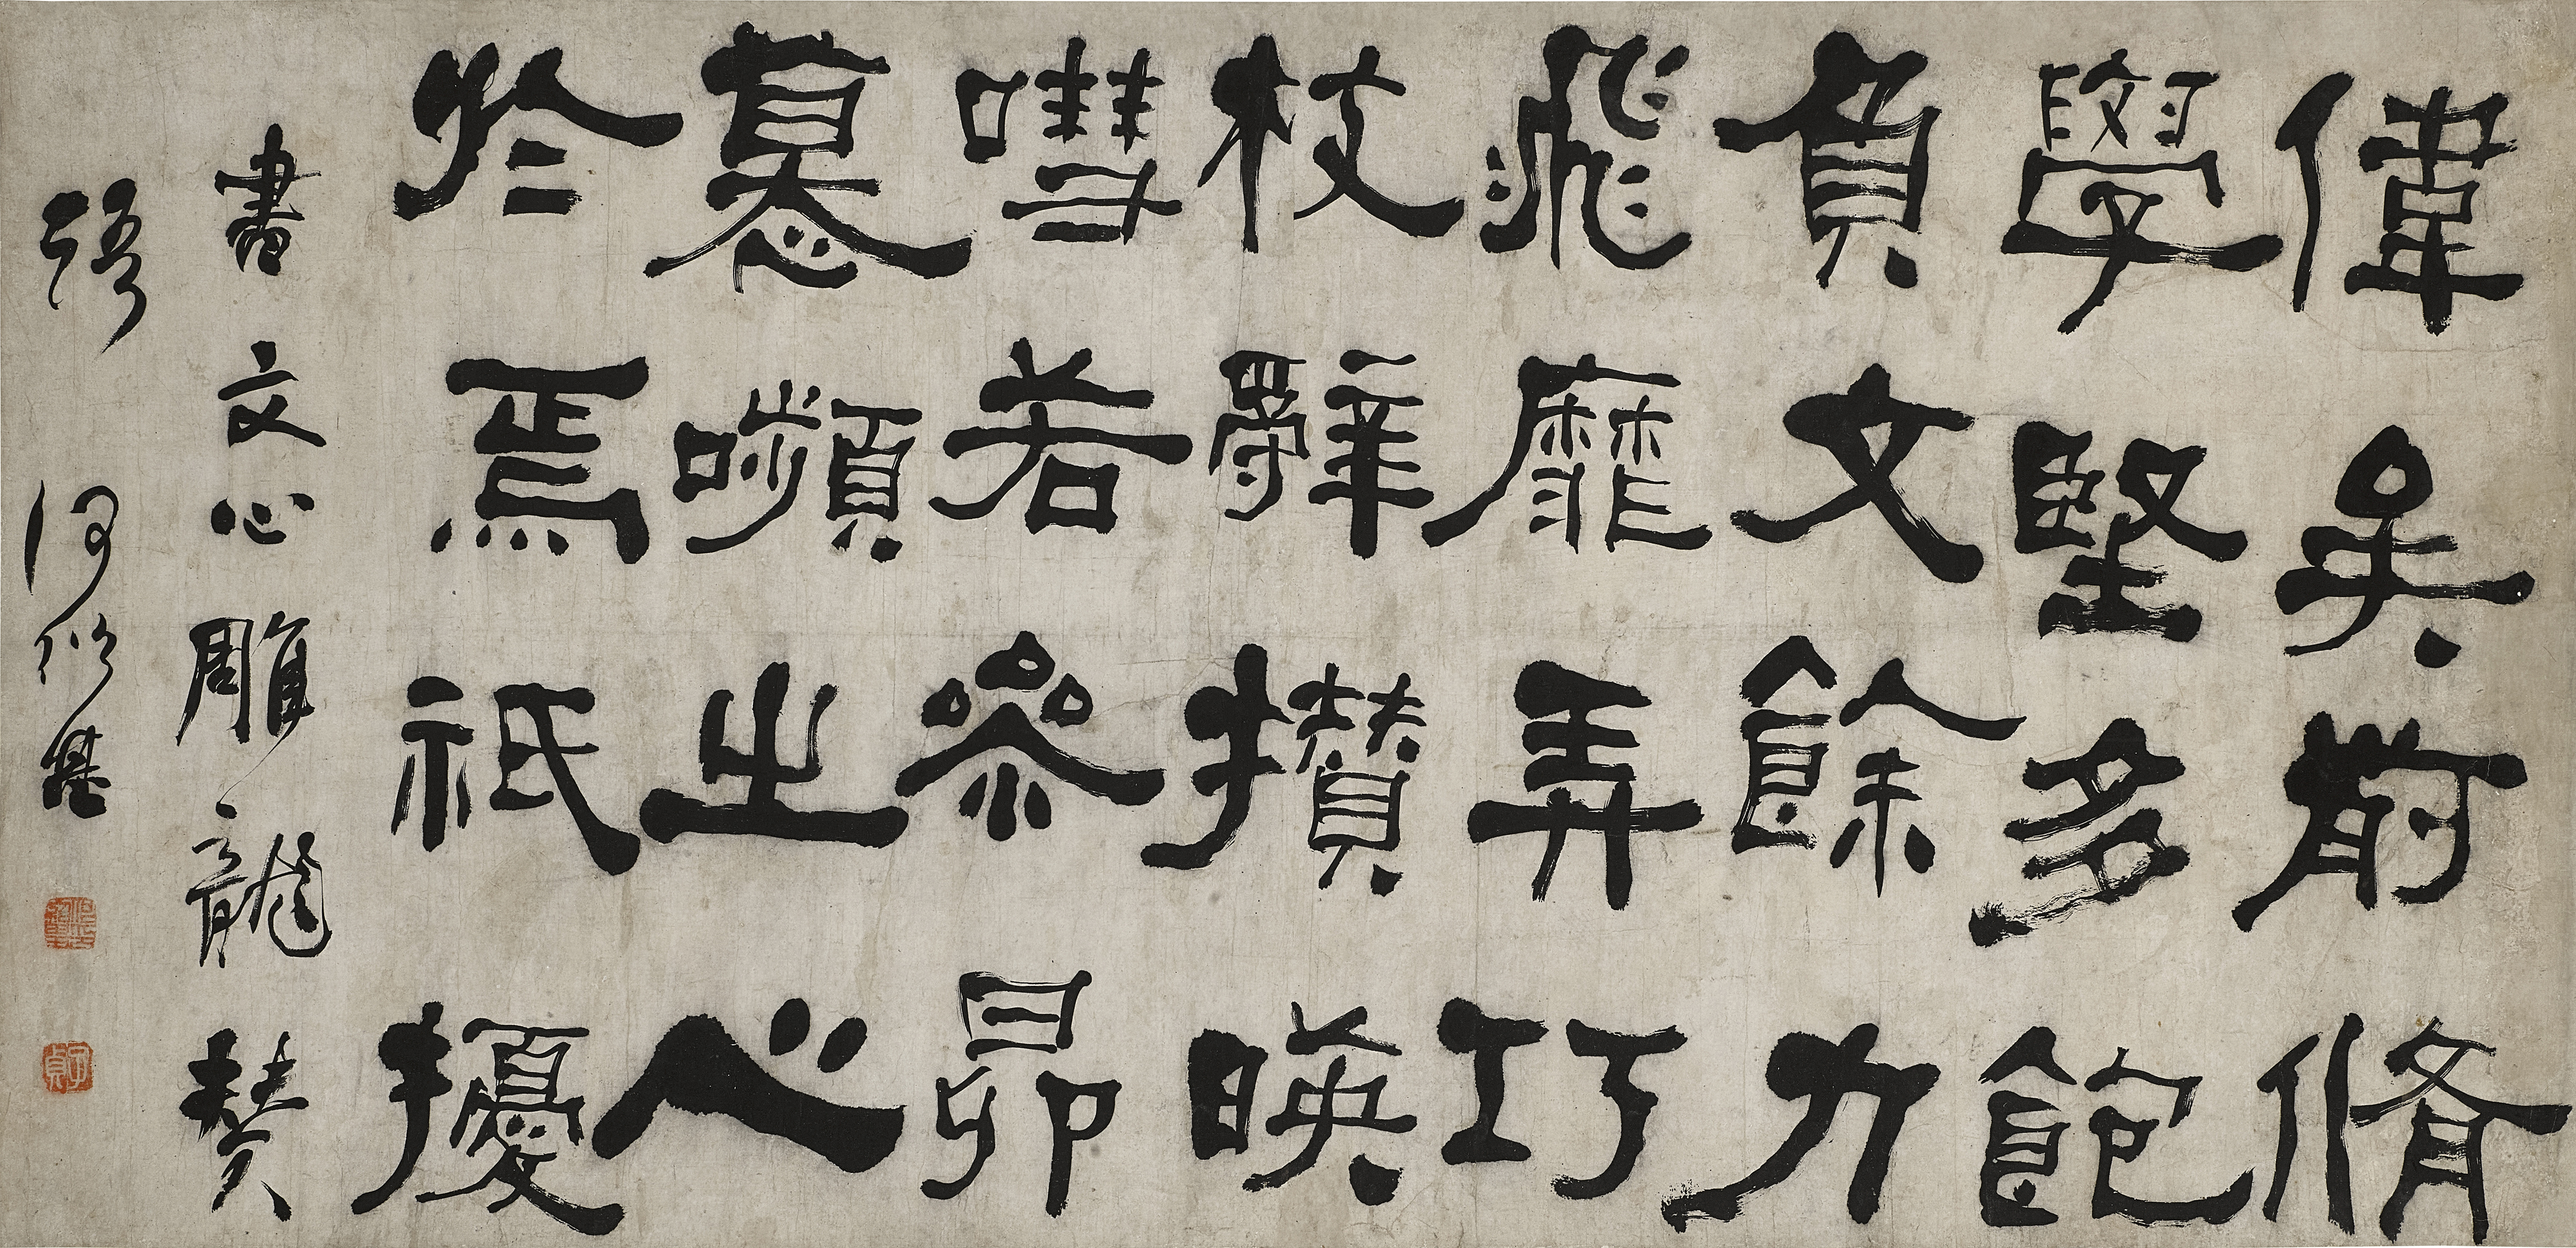 偉矣前脩
學堅多飽
負文餘力
飛靡弄巧
枝辭攢映
嘒若參昴
慕嚬之心
於焉祇擾
書文心雕龍贊
語 何紹基
子貞